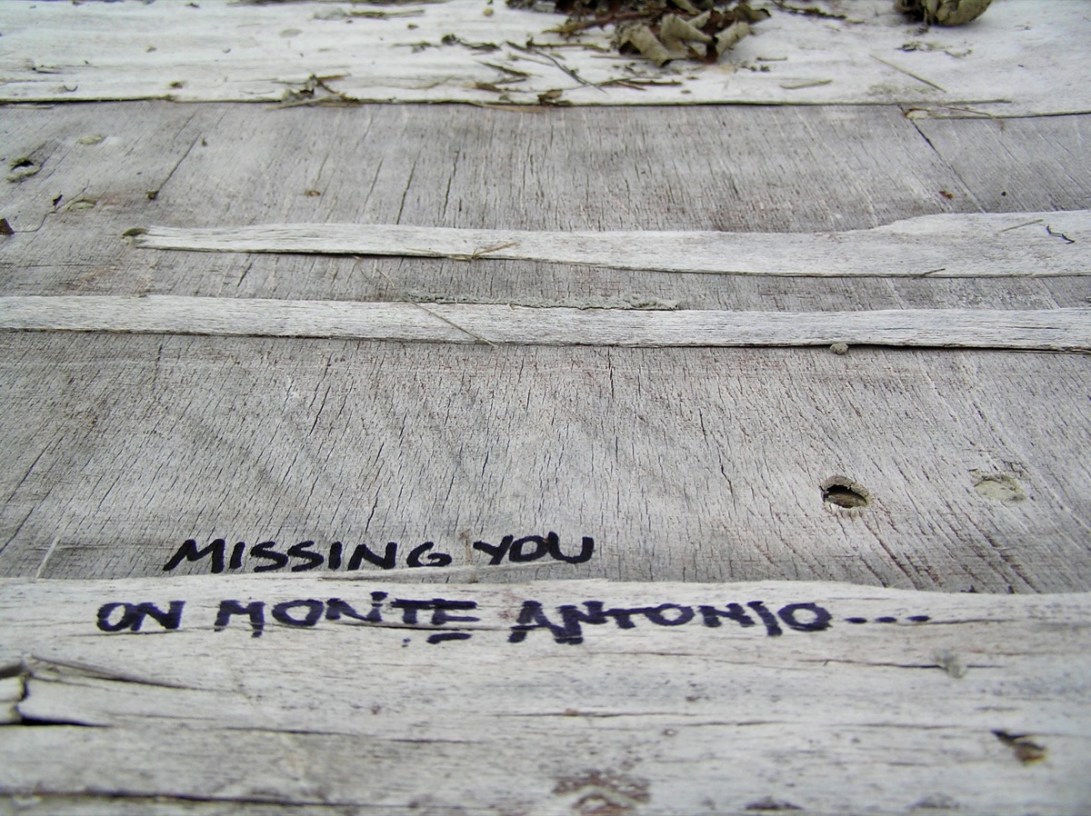 MISSING YOU
ON MONTE ANTONIO....